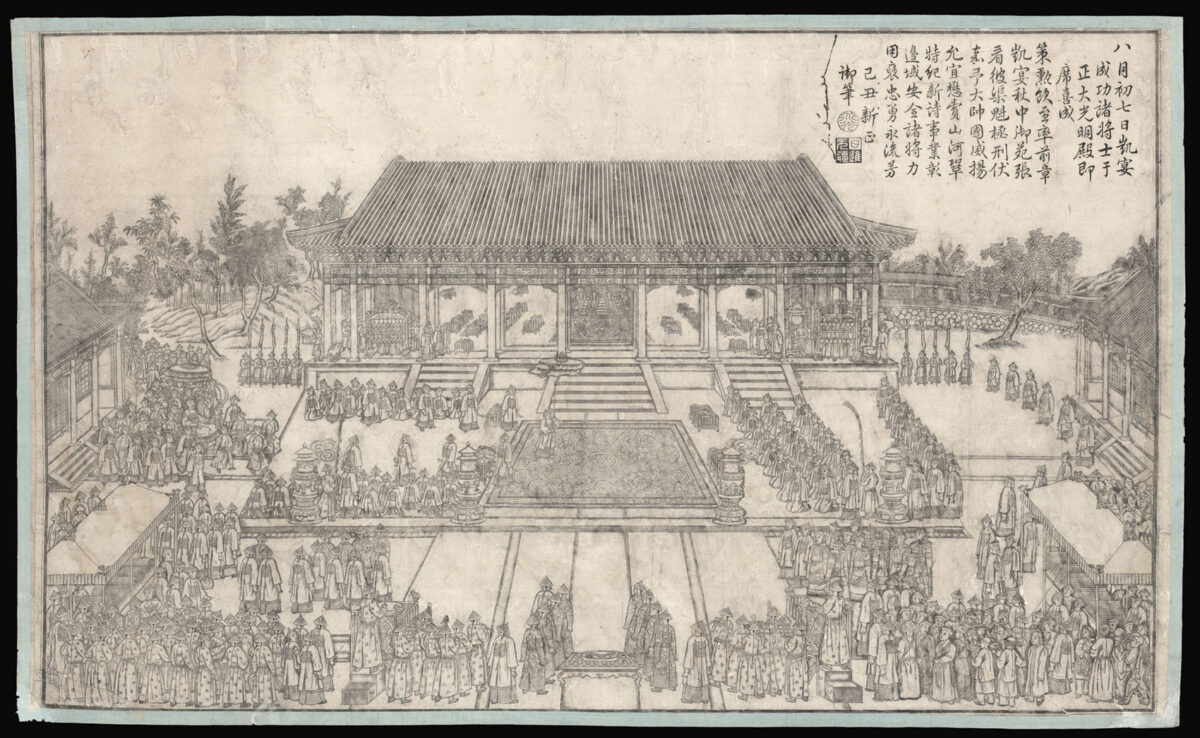 八月初七日凱宴
成功諸將士于
正大光明殿即
席喜成
策勳飲至率前章
凱宴秋中御苑張
看彼渠魁極刑伏
嘉予大帥國威揚
允宜懋賞山河鞏
特紀新詩事業彰
邊域安全諸將力
用襃忠勇永流芳
己丑新正
御筆